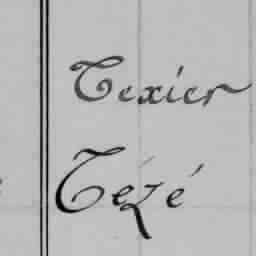 Texier
Tézé